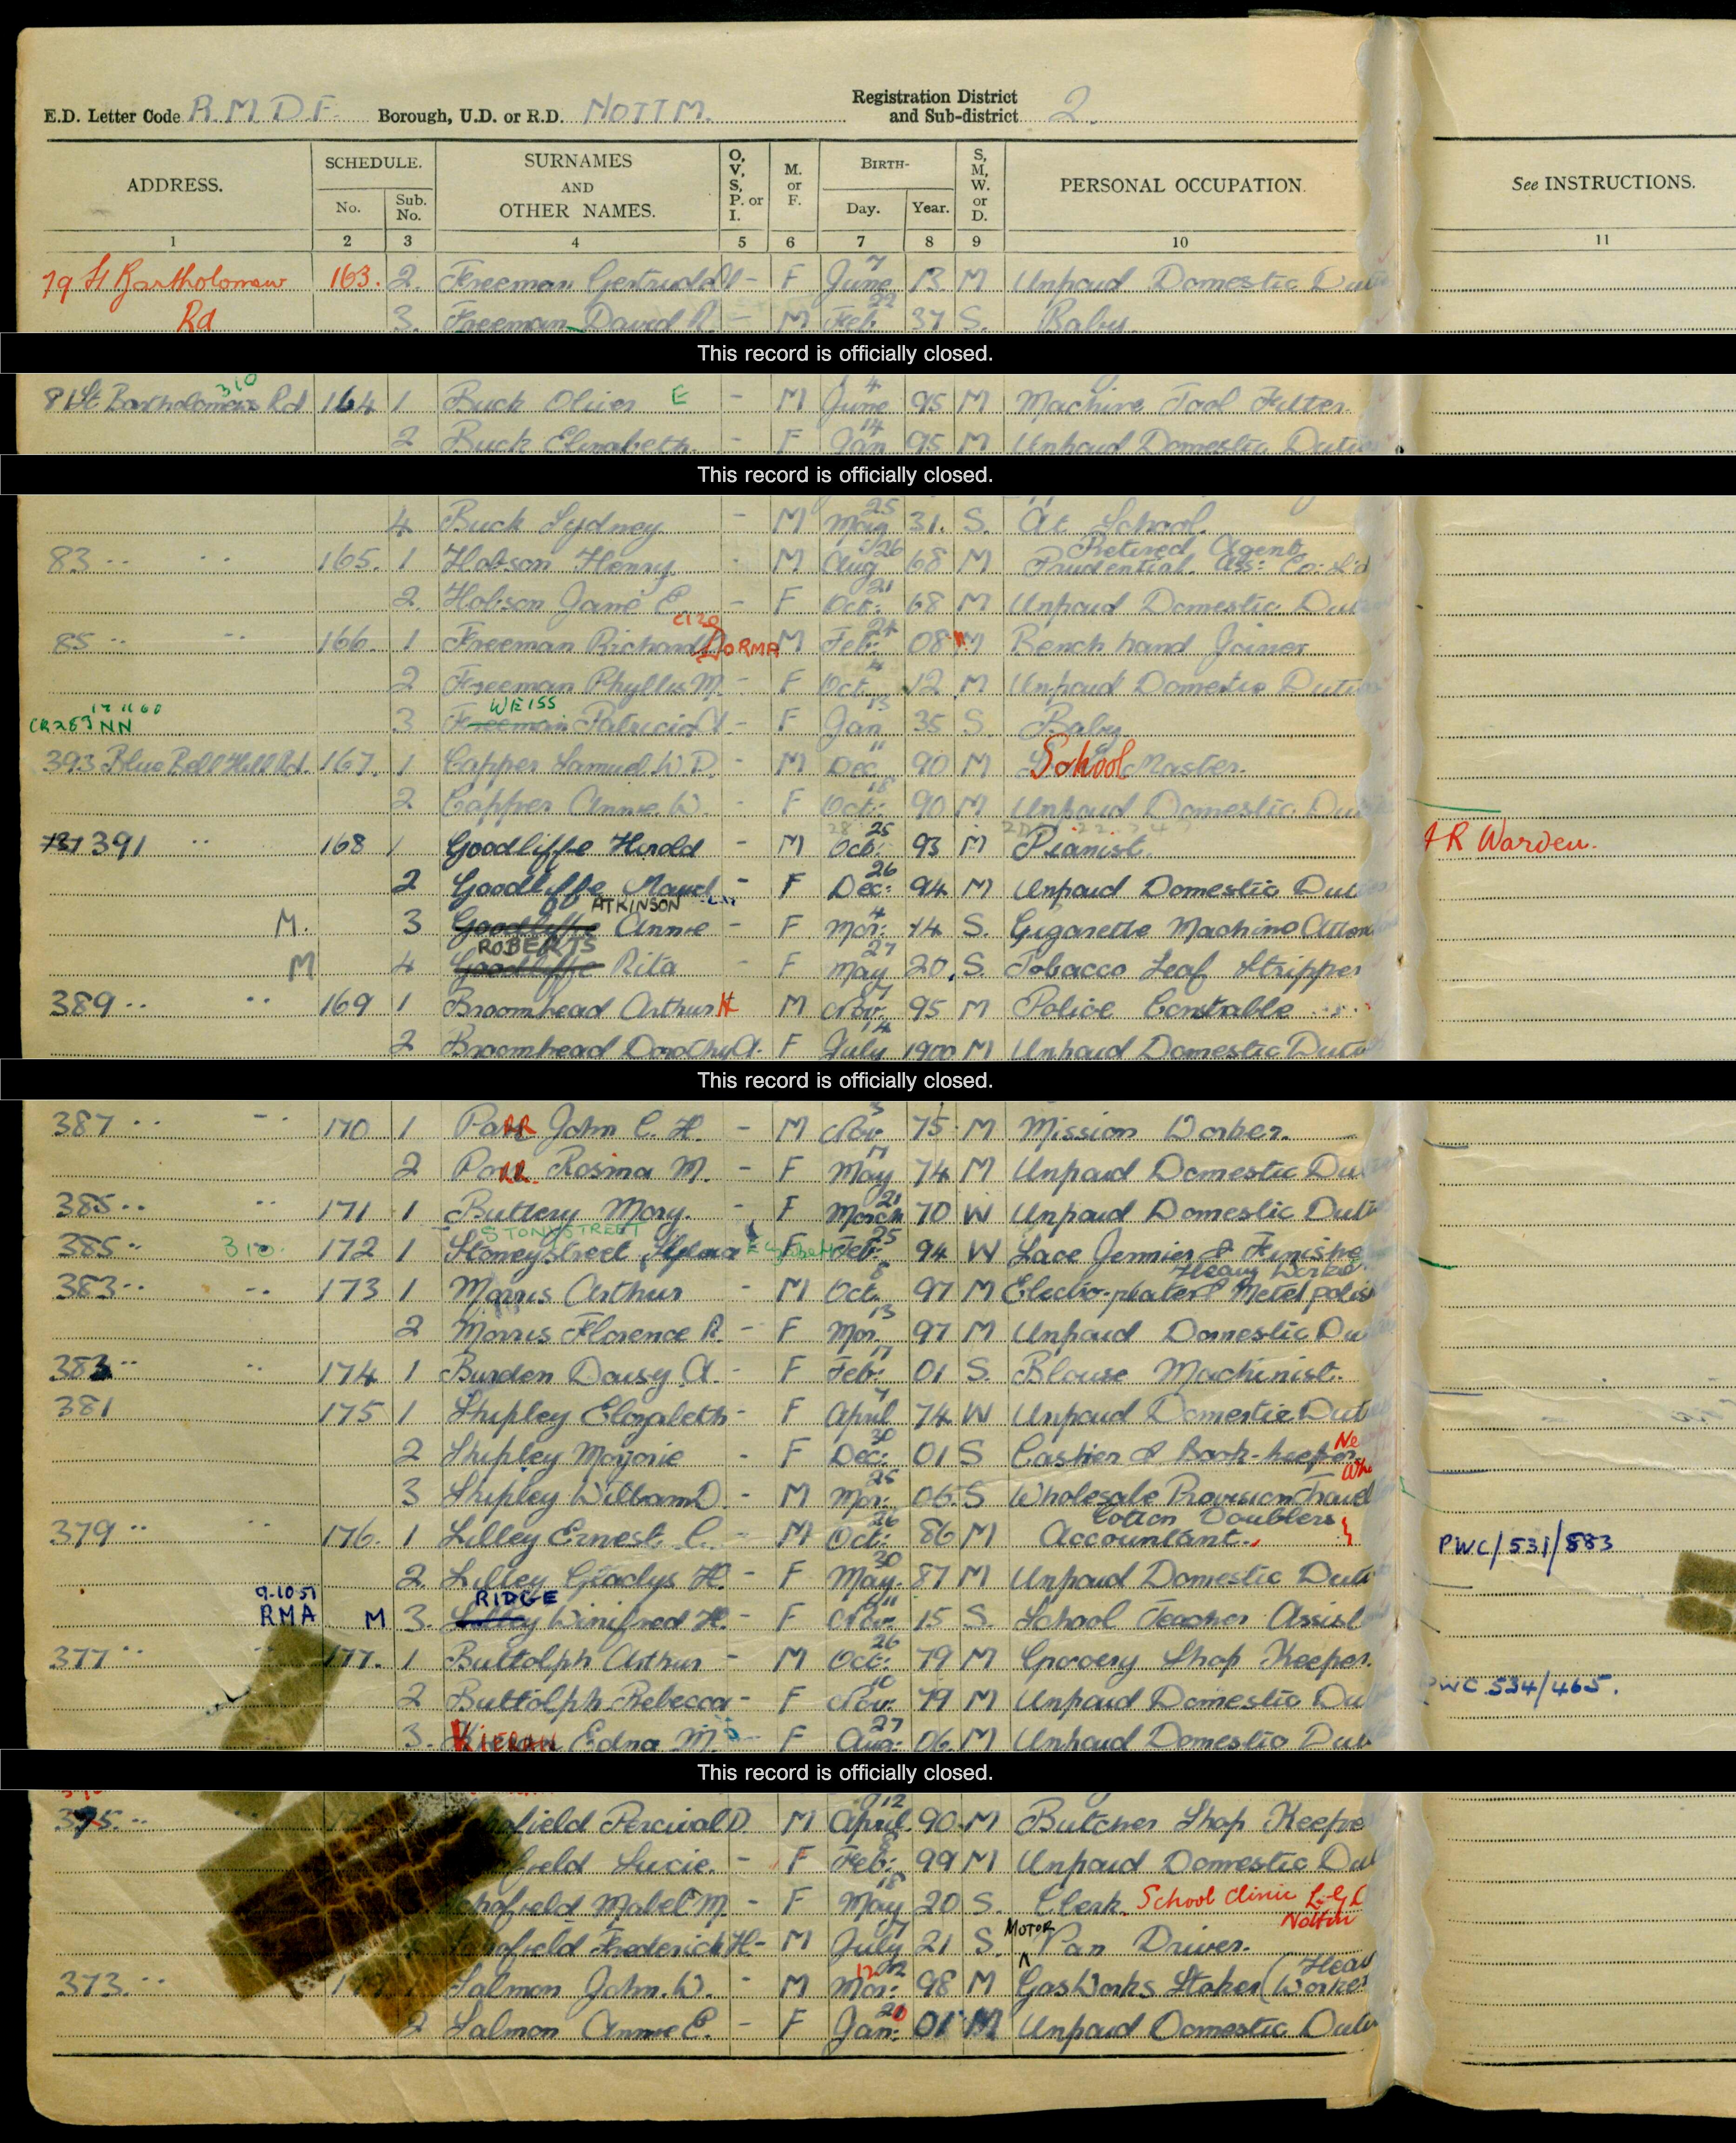 E.D. Letter Code R.M.D.F. Borough, U.D. or R.D. NOTTM. Registration District and Sub-district 2.
ADDRESS. SCHEDULE. No. Sub. No. SURNAMES AND OTHER NAMES. O, V, S, P. or I. M. or F. BIRTH- Day. Year. S, M, W. or D. PERSONAL OCCUPATION. See INSTRUCTIONS.
1 2 3 4 5 6 7 8 9 10 11
79 St Bartholomew 163. 2. Freeman Gertrude - F June 7 13 M Unpaid Domestic
Rd 3. Freeman David R. - M Feb 22 37 S. Baby
This record is officially closed.
310
81 St Bartholomew's Rd 164 1 Buck Oliver E - M June 4 95 M Machine Tool Fitter.
2 Buck Elizabeth - F Jan 14 95 M Unpaid Domestic Duties
This record is officially closed.
4 Buck Sydney - M May 25 31. S. At School
83 165. 1 Hobson Henry - M Aug 26 68 M Retired Agent Prudential Ass: Co: Ltd
2. Hobson Jane E. - F Oct: 21 68 M Unpaid Domestic
85 166. 1 Freeman Richard M Feb: 24 08 M Bench hand Joiner
2 Freeman Phyllis M. - F Oct 4 12 M Unpaid Domestic Duties
CR283 NN WEISS
3 Freeman Patricia - F Jan 13 35 S. Baby
393 Blue Bell Hill Rd. 167. 1 Capper Samuel W.D. - M Dec 11 90 M School Master.
2 Capper Annie W. - F Oct: 18 90 M Unpaid Domestic
391 168 1 Goodliffe Harold - M Oct: 25 93 M Pianist. Warden.
2 Goodliffe Maud - F Dec: 26 94 M Unpaid Domestic
ATKINSON
M. 3 Goodliffe Annie - F Mar: 4 14 S. Cigarette Machine
ROBERTS
M 4 Goodliffe Rita - F May 27 20. S. Tobacco Leaf Stripper
389 169 1 Broomhead Arthur H M Nov: 7 95 M Police Constable
2 Broomhead Dorothy A. F July 14 1900 M Unpaid Domestic
This record is officially closed.
387 170 1 Parr John C. H. - M Nov: 5 75 M Mission Worker.
2 Parr Rosina M. - F May 17 74 M Unpaid Domestic
385 171 1 Buttery Mary. - F March 21 70 W Unpaid Domestic
STONYSTREET
385 310. 172 1 Stoneystreet Elizabeth Feb: 25 94 W Lace Jennier &
383 173 1 Morris Arthur - M Oct. 8 97 M Electro-plater & Metel Heavy Worker
2 Morris Florence R. - F Mar. 13 97 M Unpaid Domestic
383 174 1 Burden Daisy A. - F Feb: 17 01 S. Blouse Machinist.
381 175 1 Shipley Elizabeth - F April 7 74 W Unpaid Domestic
2 Shipley Marjorie - F Dec: 30 01 S Cashier & Book-keeper
3 Shipley William D. - M Mar: 25 06. S Wholesale Provision
379 176. 1 Lilley Ernest C. - M Oct: 26 86 M Cotton Doublers Accountant. PWC/531/883
2. Lilley Gladys H. - F May. 30 87 M Unpaid Domestic
9.10.51 RIDGE
RMA M 3. Lilley Winifred H. - F Nov: 11 15 S. School Teacher Assist
377 177. 1 Buttolph Arthur - M Oct: 26 79 M Grocery Shop Keeper.
2 Buttolph Rebecca - F Nov: 10 79 M Unpaid Domestic PWC 534/465.
3. KIERAN Edna M. - F Aug: 27 06. M Unpaid Domestic
This record is officially closed.
375. Percival D. M April 12 90 M Butcher Shop Keeper
Lucie. - F Feb: 8 99 M Unpaid Domestic
Mabel M. - F May 18 20 S. Clerk. School Clinic
Frederick H - M July 7 21 S. MOTOR Van Driver.
373. Salmon John. W. - M Mar: 12 98 M Gas Works Stoker (Heavy Worker
2 Salmon Annie E. - F Jan: 20 01 M Unpaid Domestic